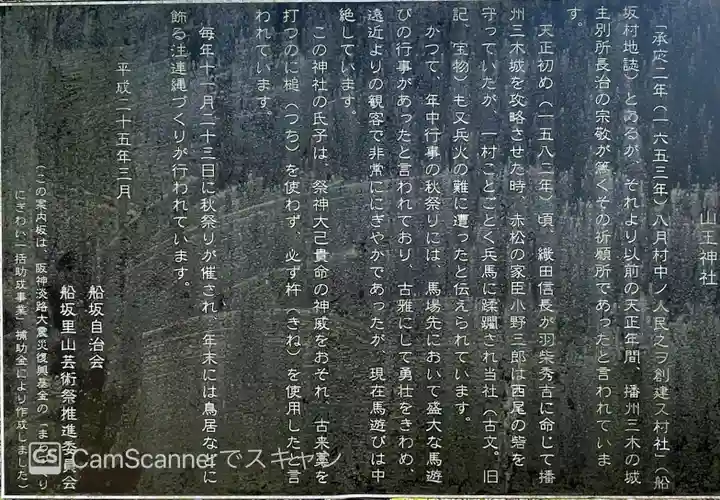 山王神社
「承応二年(一六五三年)八月村中ノ人民之ヲ創建ス村社」(船
坂村地誌)とあるが、それより以前の天正年間、播州三木の城
主別所長治の宗敬が篤くその祈願所であったと言われていま
す。
天正初め(一五八二年)頃、織田信長が羽柴秀吉に命じて播
州三木城を攻略させた時、赤松の家臣小野三郎は西尾の砦を
守っていたが、一村ことごとく兵馬に蹂躙され当社(古文。旧
記、宝物)も又兵火の難に遭ったと伝えられています。
かつて、年中行事の秋祭りには、馬場先において盛大な馬遊
びの行事があったと言われており、古雅にして勇壮をきわめ、
遠近よりの観客で非常ににぎやかであったが、現在馬遊びは中
絶しています。
この神社の氏子は、祭神大己貴命の神威をおそれ、古来藁を
打つのに槌(つち)を使わず、必ず杵(きね)を使用したと言
われています。
毎年十一月二十三日に秋祭りが催され、年末には鳥居などに
飾る注連縄づくりが行われています。
平成二十五年三月
船坂自治会
船坂里山芸術祭推進委員会
(この案内板は、阪神淡路大震災復興基金の「まちのにぎわいづくり
一括助成事業」補助金により作成しました)
CS CamScannerでスキャン